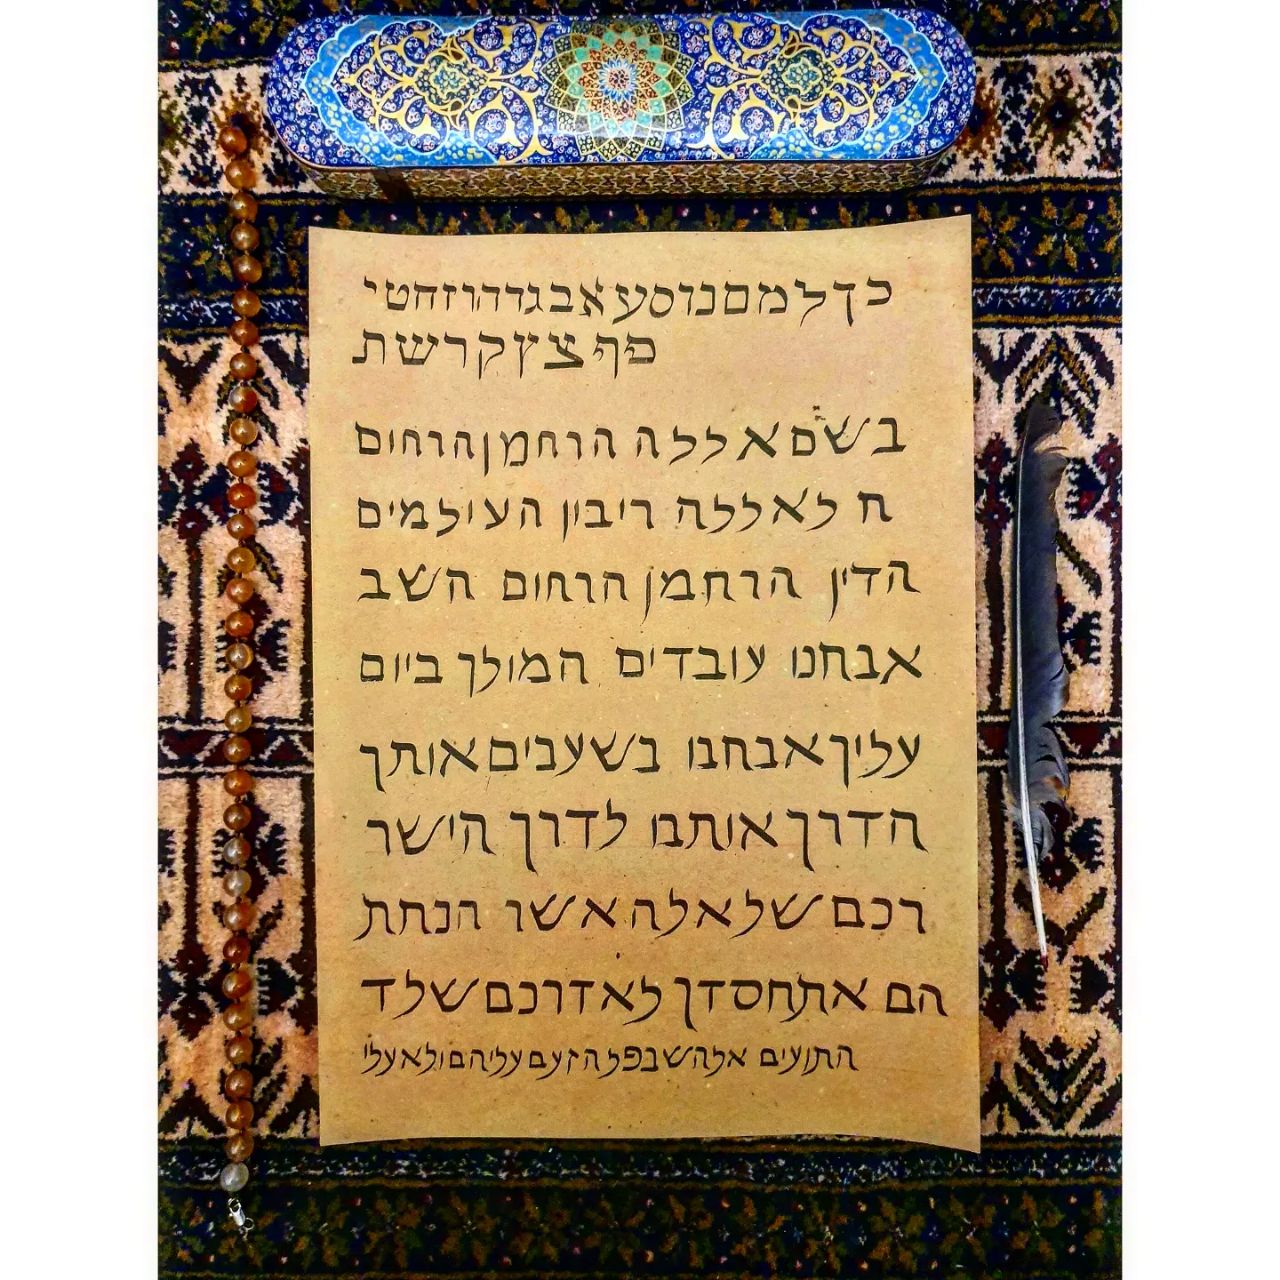 כךלמםנוסעאבגדהוזחטי
פףצץקרשת
בשם אללה הרחמן הרחום
ח לאללה ריבון העולמים
הדין הרחמן הרחום השב
אנחנו עובדים המולך ביום
עליך אנחנו נשענים אותך
הדרך אותנו לדרך הישר
רכם של אלה אשר הנחת
הם את חסדך לא דרכם של ד
התועים אלה שנפלה זעם עליהם ולא עלי